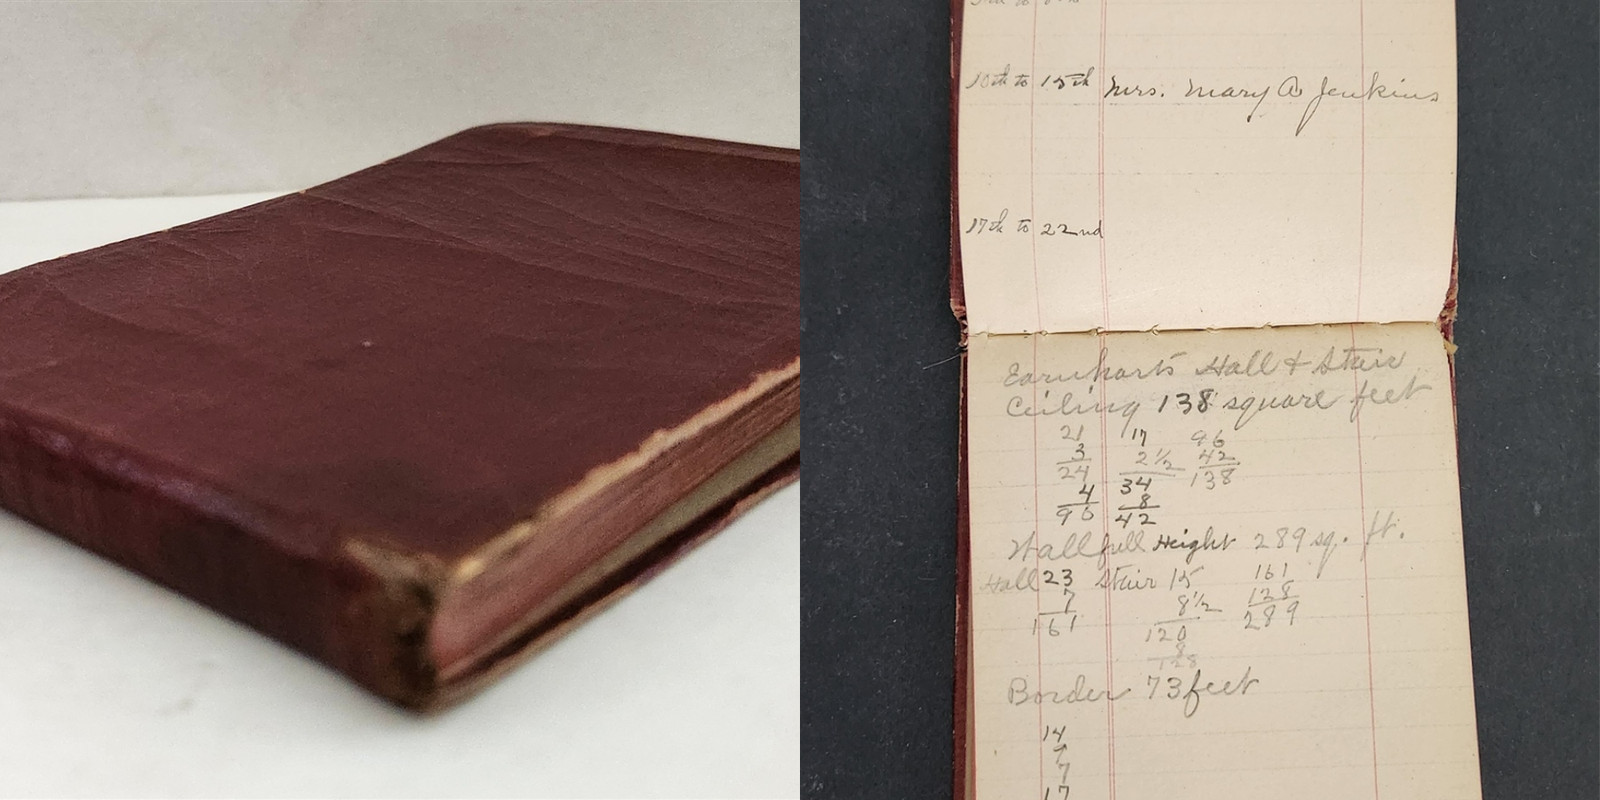 10th to 15th Mrs. Mary A. Jenkins
17th to 22nd
Earnharts Hall & Stair
Ceiling 138 square feet
21 17 96
3 2 1/2 42
24 34 138
4 8
96 42
Wall full Height 289 sq. ft.
Hall 23 Stair 15 161
7 8 1/2 128
161 120 289
8
128
Border 73 feet
14
7
17